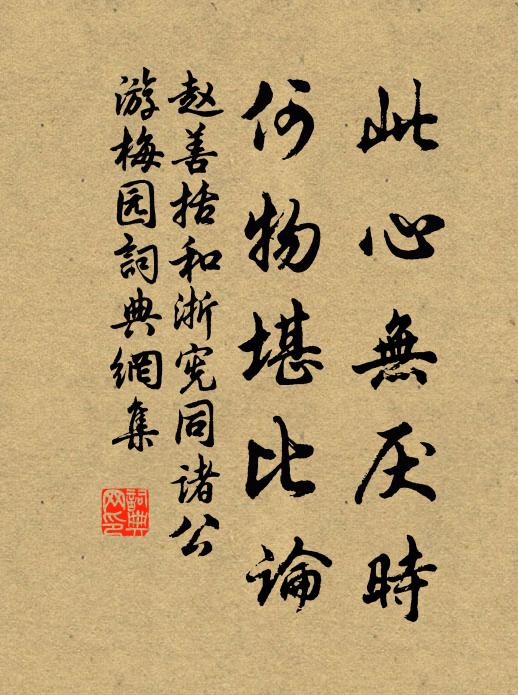 此心無厌時
何物堪比論
赵善括和浙宪同诸公
游梅园詞典網集
詞典網印